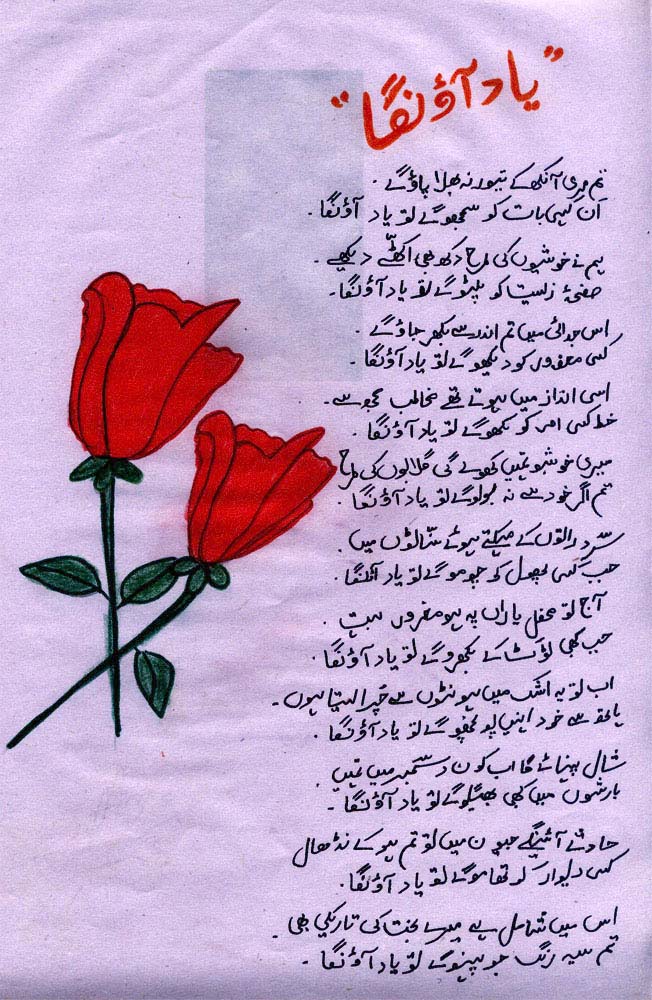 "یاد آؤنگا"
تم میری آنکھ کے تیور نہ بھلا پاؤ گے۔
اَن کہی بات کو سمجھو گے تو یاد آؤنگا۔
ہم نے خوشیوں کی طرح دکھ بھی اکٹھے دیکھے۔
صفحۂ زلیت کو پلٹو گے تو یاد آؤنگا۔
اس جدائی میں تم اندر سے بکھر جاؤ گے
کسی معذور کو دیکھو گے تو یاد آؤنگا۔
اسی انداز میں ہوتے تھے مخاطب مجھ سے
خط کسی اور کو لکھو گے تو یاد آؤنگا۔
میری خوشبو تمہیں کھولے گی گلابوں کی طرح
تم اگر خود سے نہ بولو گے تو یاد آؤنگا۔
سرد راتوں کے مہکتے ہوئے سنّاٹوں میں
جب کسی پھول کو چومو گے تو یاد آؤنگا۔
آج تو محفلِ یاراں پہ ہو مغرور بہت
جب کبھی ٹوٹ کے بکھرو گے تو یاد آؤنگا۔
اب تو یہ اشک میں ہونٹوں سے چُرا لیتا ہوں۔
ہاتھ سے خود انہیں پونچھو گے تو یاد آؤنگا۔
شال پہنائے گا اب کون دسمبر میں تمہیں
بارشوں میں کبھی بھیگو گے تو یاد آؤنگا۔
حادثے آئینگے جیون میں تو تم ہو کے نڈھال
کسی دیوار کو تھامو گے تو یاد آؤنگا۔
اس میں شامل ہے میرے بخت کی تاریکی بھی۔
تم سیہ رنگ جو پہنو گے تو یاد آؤنگا۔